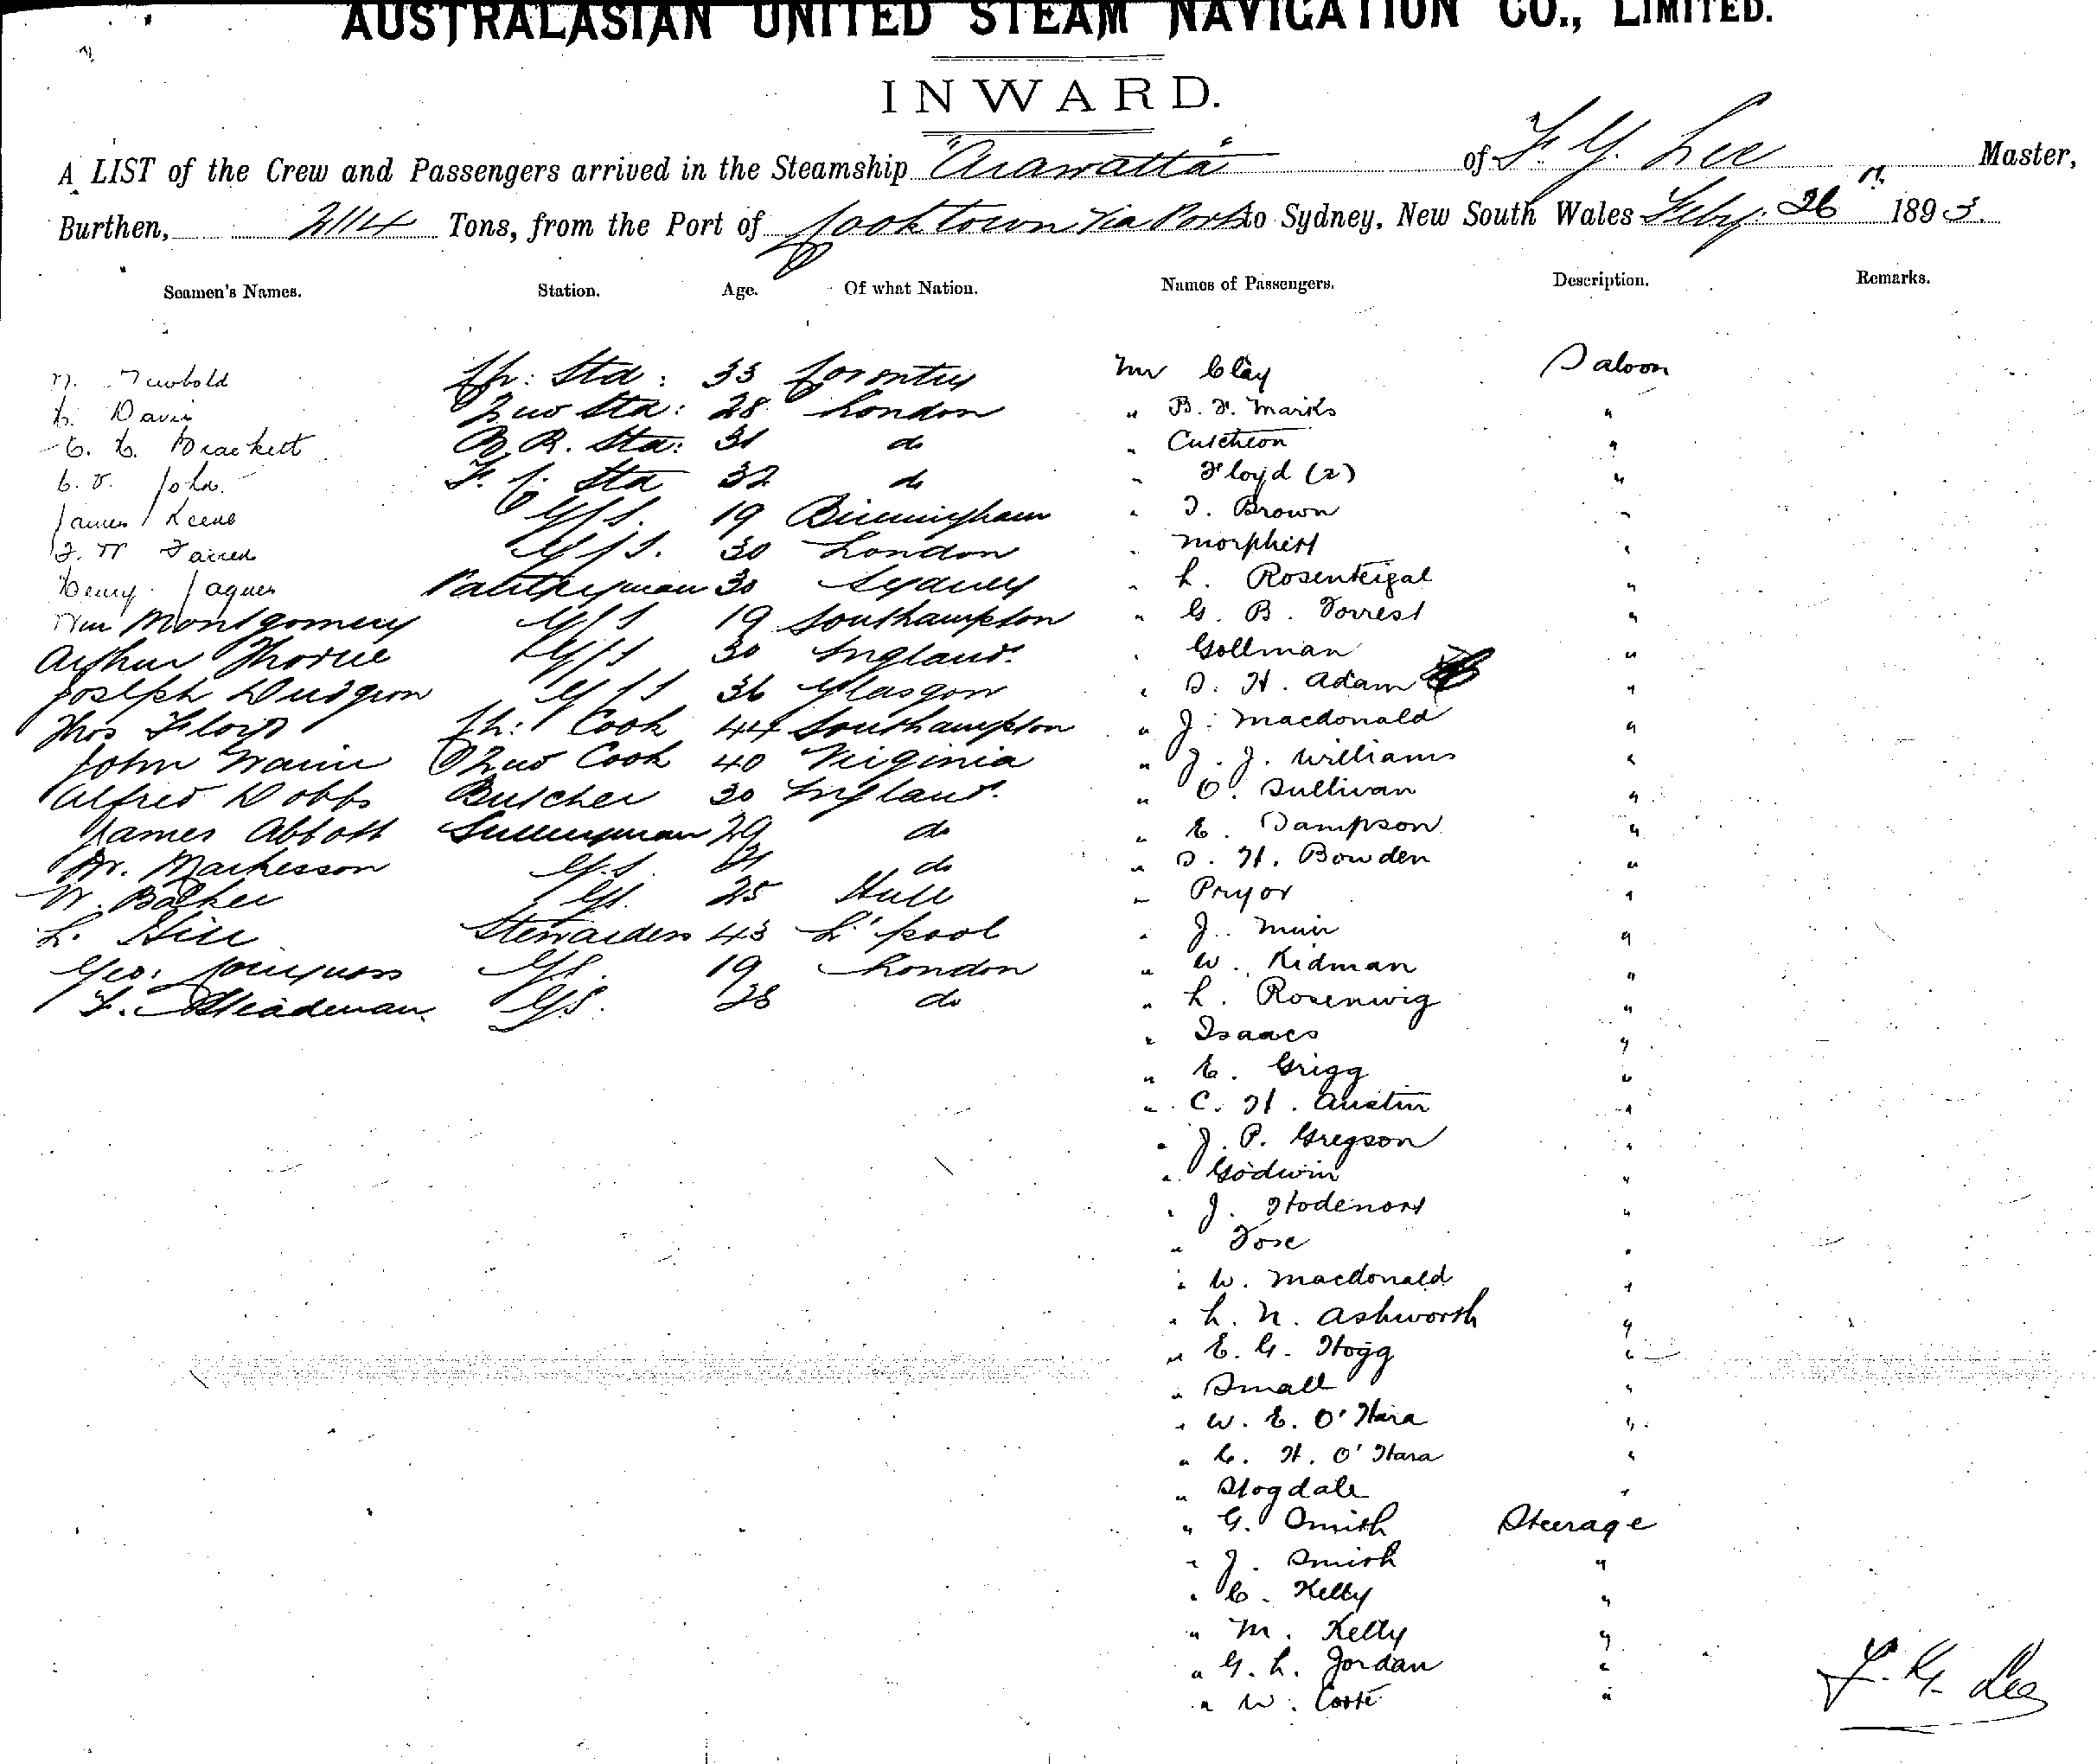 AUSTRALASIAN UNITED STEAM NAVIGATION CO., LIMITED.
INWARD.
A LIST of the Crew and Passengers arrived in the Steamship "Arawatta" of F. G. Lee Master,
Burthen, 2114 Tons, from the Port of Cooktown via Ports to Sydney, New South Wales Feby. 26th 1893.
Seamen's Names. Station. Age. Of what Nation. Names of Passengers. Description. Remarks.
N. Newbold Ch: Std: 33 Mr Clay Saloon
H. Davis 2nd Std: 28 London " B. F. Marks "
C. H. Brackett B. R. Std: 31 do " Cutcheon "
C. V. John F. C. Std 32 do " Floyd (2) "
James Keene G/S. 19 Birmingham " J. Brown "
J. W G/S. 30 London " Morphett "
Henry Jaques Pantryman 30 Sydney " L. "
Wm Montgomery G/S 19 Southampton " G. B. Forrest "
Arthur Thorne G/S 30 England. " Gollman "
Joseph Dudgeon G/S 36 Glasgow " S. H. Adam "
Thos Floyd Ch: Cook 44 Southampton " J. Macdonald "
John 2nd Cook 40 Virginia " J. J. Williams "
Alfred Dobbs Butcher 30 England. " O. Sullivan "
James Abbott 29 do " E. Sampson "
G.S. 21 do " S. H. Bowden "
W. Barker G/S. 25 Hull " Pryor "
L. Hill Stewardess 43 L'pool " J. Muir "
Geo. G/S. 19 London " W. Kidman "
F. Steadman. G/S. 28 do " L. Rosenwig "
" Isaacs "
" E. Grigg "
" C. H. Austin "
" J. P. Gregson "
" Godwin "
" J. "
" Fose "
" W. Macdonald "
" L. N. Ashworth "
" E. G. Hogg "
" Small "
" W. E. O'Hara "
" C. H. O'Hara "
" Stogdale "
" G. Smith Steerage
" J. Smith "
" C. Kelly "
" M. Kelly "
" G. L. Jordan "
" W. "
F. G. Lee